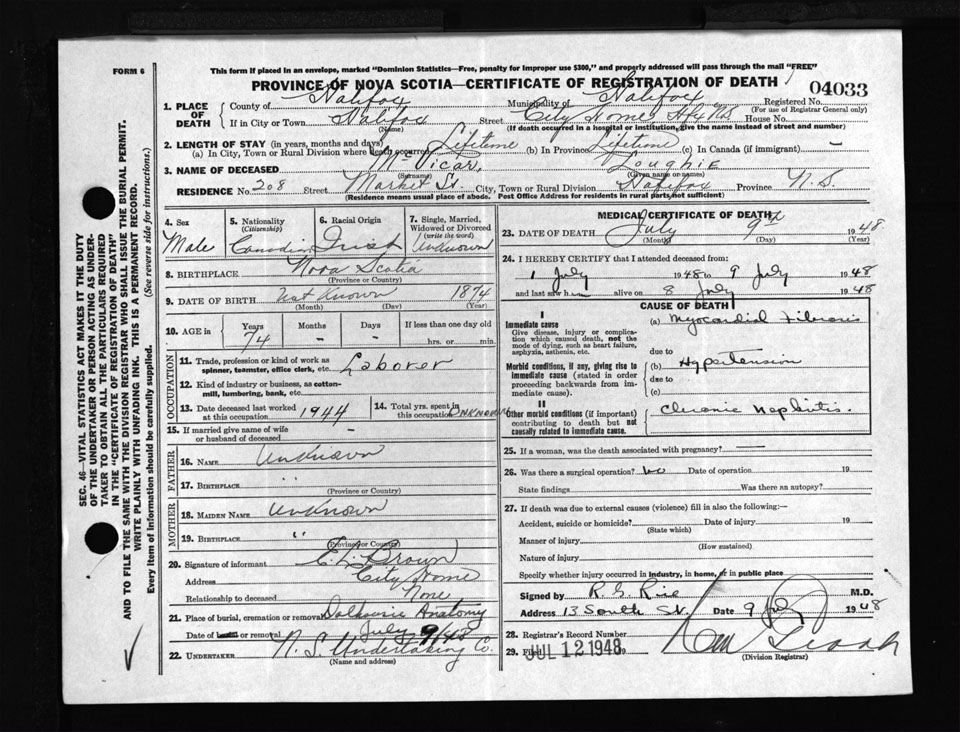 FORM 6
This form if placed in an envelope, marked "Dominion Statistics—Free, penalty for improper use $300," and properly addressed will pass through the mail "FREE"
PROVINCE OF NOVA SCOTIA—CERTIFICATE OF REGISTRATION OF DEATH
04033
1. PLACE OF DEATH
County of Halifax Municipality of Halifax Registered No.
(For use of Registrar General only)
If in City or Town Halifax Street City Home House No.
(Name) (If death occurred in a hospital or institution, give the name instead of street and number)
2. LENGTH OF STAY (in years, months and days)
(a) In City, Town or Rural Division where death occurred Lifetime (b) In Province Lifetime (c) In Canada (if immigrant) —
3. NAME OF DECEASED McVicar, Loughie
(Surname) (Given name or names)
RESIDENCE No. 208 Street Market St. City, Town or Rural Division Halifax Province N.S.
(Residence means usual place of abode. Post Office Address for residents in rural parts not sufficient)
4. Sex Male
5. Nationality (Citizenship) Canadian
6. Racial Origin Irish
7. Single, Married, Widowed or Divorced (write the word) Unknown
8. BIRTHPLACE Nova Scotia
(Province or Country)
9. DATE OF BIRTH Not Known 1874
(Month) (Day) (Year)
10. AGE in Years 74 Months - Days - If less than one day old hrs. or min.
OCCUPATION
11. Trade, profession or kind of work as spinner, teamster, office clerk, etc. Laborer
12. Kind of industry or business, as cotton-mill, lumbering, bank, etc.
13. Date deceased last worked at this occupation 1944
14. Total yrs. spent in this occupation Unknown
15. If married give name of wife or husband of deceased —
FATHER
16. NAME Unknown
17. BIRTHPLACE "
(Province or Country)
MOTHER
18. MAIDEN NAME Unknown
19. BIRTHPLACE "
(Province or Country)
20. Signature of informant E. L. Brown
Address City Home
Relationship to deceased None
21. Place of burial, cremation or removal Dalhousie Anatomy
Date of burial or removal July 9/48
22. UNDERTAKER N. S. Undertaking Co.
(Name and address)
MEDICAL CERTIFICATE OF DEATH
23. DATE OF DEATH July 9th 1948
(Month) (Day) (Year)
24. I HEREBY CERTIFY that I attended deceased from:
1 July 1948 to 9 July 1948
and last saw him alive on 8 July 1948
CAUSE OF DEATH
I
Immediate cause
Give disease, injury or complication which caused death, not the mode of dying, such as heart failure, asphyxia, asthenia, etc.
(a) Myocardial Fibrosis
due to
Morbid conditions, if any, giving rise to immediate cause (stated in order proceeding backwards from immediate cause).
(b) Hypertension
due to
(c)
II
Other morbid conditions (if important) contributing to death but not causally related to immediate cause.
Chronic Nephritis.
25. If a woman, was the death associated with pregnancy?
26. Was there a surgical operation? no Date of operation 19
State findings Was there an autopsy?
27. If death was due to external causes (violence) fill in also the following:—
Accident, suicide or homicide? Date of injury 19
(State which)
Manner of injury
(How sustained)
Nature of injury
Specify whether injury occurred in industry, in home, or in public place
Signed by M.D.
Address 13 South St. Date 9 July 1948
28. Registrar's Record Number
29. Filed JUL 12 1948
(Division Registrar)
SEC. 46—VITAL STATISTICS ACT MAKES IT THE DUTY
OF THE UNDERTAKER OR PERSON ACTING AS UNDER-
TAKER TO OBTAIN ALL THE PARTICULARS REQUIRED
IN THE "CERTIFICATE OF REGISTRATION OF DEATH"
AND TO FILE THE SAME WITH THE DIVISION REGISTRAR WHO SHALL ISSUE THE BURIAL PERMIT.
WRITE PLAINLY WITH UNFADING INK. THIS IS A PERMANENT RECORD.
Every item of information should be carefully supplied. (See reverse side for instructions.)